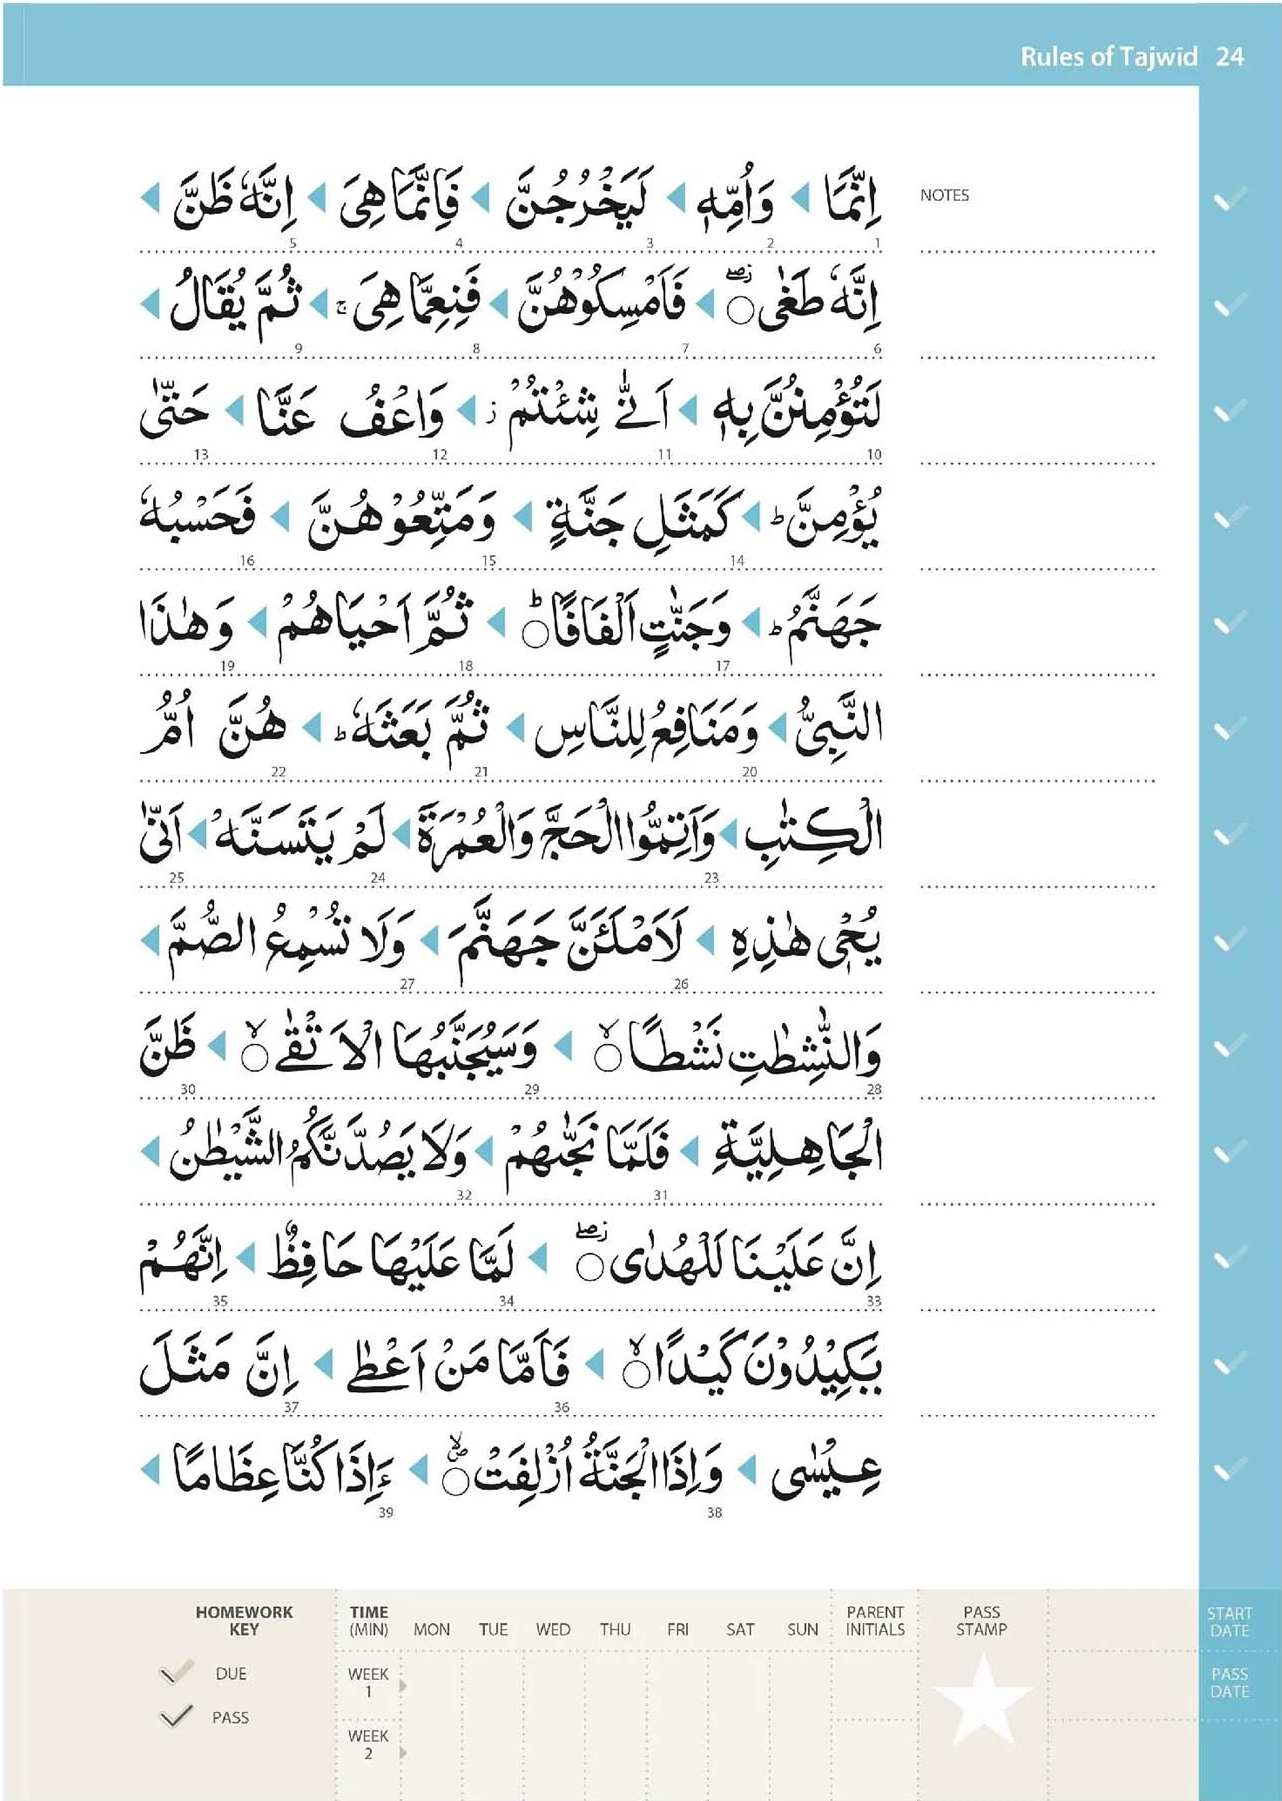 Rules of Tajwīd 24
NOTES
اِنَّمَا ◀ وَاُمِّهٖ ◀ لَيَخْرُجُنَّ ◀ فَاِنَّمَا هِىَ ◀ اِنَّهٗ ظَنَّ ◀
1 2 3 4 5
اِنَّهٗ طَغٰى ۖ○ ◀ فَاَمْسِكُوْهُنَّ ◀ فَنِعِمَّا هِىَ ۚ ◀ ثُمَّ يُقَالُ ◀
6 7 8 9
لَتُؤْمِنُنَّ بِهٖ ◀ اَنّٰى شِئْتُمْ ز ◀ وَاعْفُ عَنَّا ◀ حَتّٰى
10 11 12 13
يُؤْمِنَّ ؕ ◀ كَمَثَلِ جَنَّةٍ ◀ وَمَتِّعُوْهُنَّ ◀ فَحَسْبُهٗ
14 15 16
جَهَنَّمُ ؕ ◀ وَجَنّٰتٍ اَلْفَافًا ؕ○ ◀ ثُمَّ اَحْيَاهُمْ ◀ وَهٰذَا
17 18 19
النَّبِىُّ ◀ وَمَنَافِعُ لِلنَّاسِ ◀ ثُمَّ بَعَثَهٗ ؕ ◀ هُنَّ اُمُّ
20 21 22
الْكِتٰبِ ◀ وَاَتِمُّوا الْحَجَّ وَالْعُمْرَةَ ◀ لَمْ يَتَسَنَّهْ ◀ اَنّٰى
23 24 25
يُحْىٖ هٰذِهِ ◀ لَاَمْلَئَنَّ جَهَنَّمَ ◀ وَلَا تُسْمِعُ الصُّمَّ ◀
26 27
وَالنّٰشِطٰتِ نَشْطًا ۙ○ ◀ وَسَيُجَنَّبُهَا الْاَتْقٰى ۙ○ ◀ ظَنَّ
28 29 30
الْجَاهِلِيَّةِ ◀ فَلَمَّا نَجّٰىهُمْ ◀ وَلَا يَصُدَّنَّكُمُ الشَّيْطٰنُ ◀
31 32
اِنَّ عَلَيْنَا لَلْهُدٰى ۖ○ ◀ لَمَّا عَلَيْهَا حَافِظٌ ◀ اِنَّهُمْ
33 34 35
يَكِيْدُوْنَ كَيْدًا ۙ○ ◀ فَاَمَّا مَنْ اَعْطٰى ◀ اِنَّ مَثَلَ
36 37
عِيْسٰى ◀ وَاِذَا الْجَنَّةُ اُزْلِفَتْ ۙ○ ◀ ءَاِذَا كُنَّا عِظَامًا ◀
38 39
HOMEWORK KEY
DUE
PASS
TIME (MIN) MON TUE WED THU FRI SAT SUN PARENT INITIALS PASS STAMP START DATE
WEEK 1 PASS DATE
WEEK 2